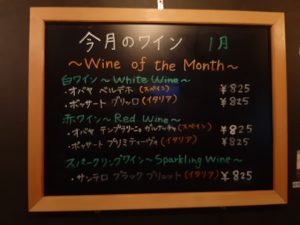 今月のワイン 1月
～Wine of the Month～
白ワイン～White Wine～
・オバヤ ベルデホ (スペイン) ¥825
・ボッサート グリッロ (イタリア) ¥825
赤ワイン～Red Wine～
・オバヤ テンプラニーニョ ガルナッチャ (スペイン) ¥825
・ボッサート プリミティーヴォ (イタリア) ¥825
スパークリングワイン～Sparkling Wine～
・サンテロ ブラック ブリュット (イタリア) ¥825